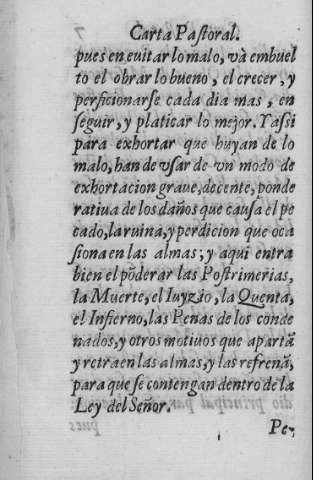 Carta Pastoral.
pues en euitar lo malo, và embuel
to el obrar lo bueno, el crecer, y
perficionarse cada dia mas, en
seguir, y platicar lo mejor. Y assi
para exhortar que huyan de lo
malo, han de vsar de vn modo de
exhortacion graue, decente, ponde
ratiua de los daños que causa el pe
cado, la ruina, y perdicion que oca
siona en las almas; y aqui entra
bien el põderar las Postrimerias,
la Muerte, el Iuyzio, la Quenta,
el Infierno, las Penas de los conde
nados, y otros motiuos que apartã
y retraen las almas, y las refrenã,
para que se contengan dentro de la
Ley del Señor.
Pe-